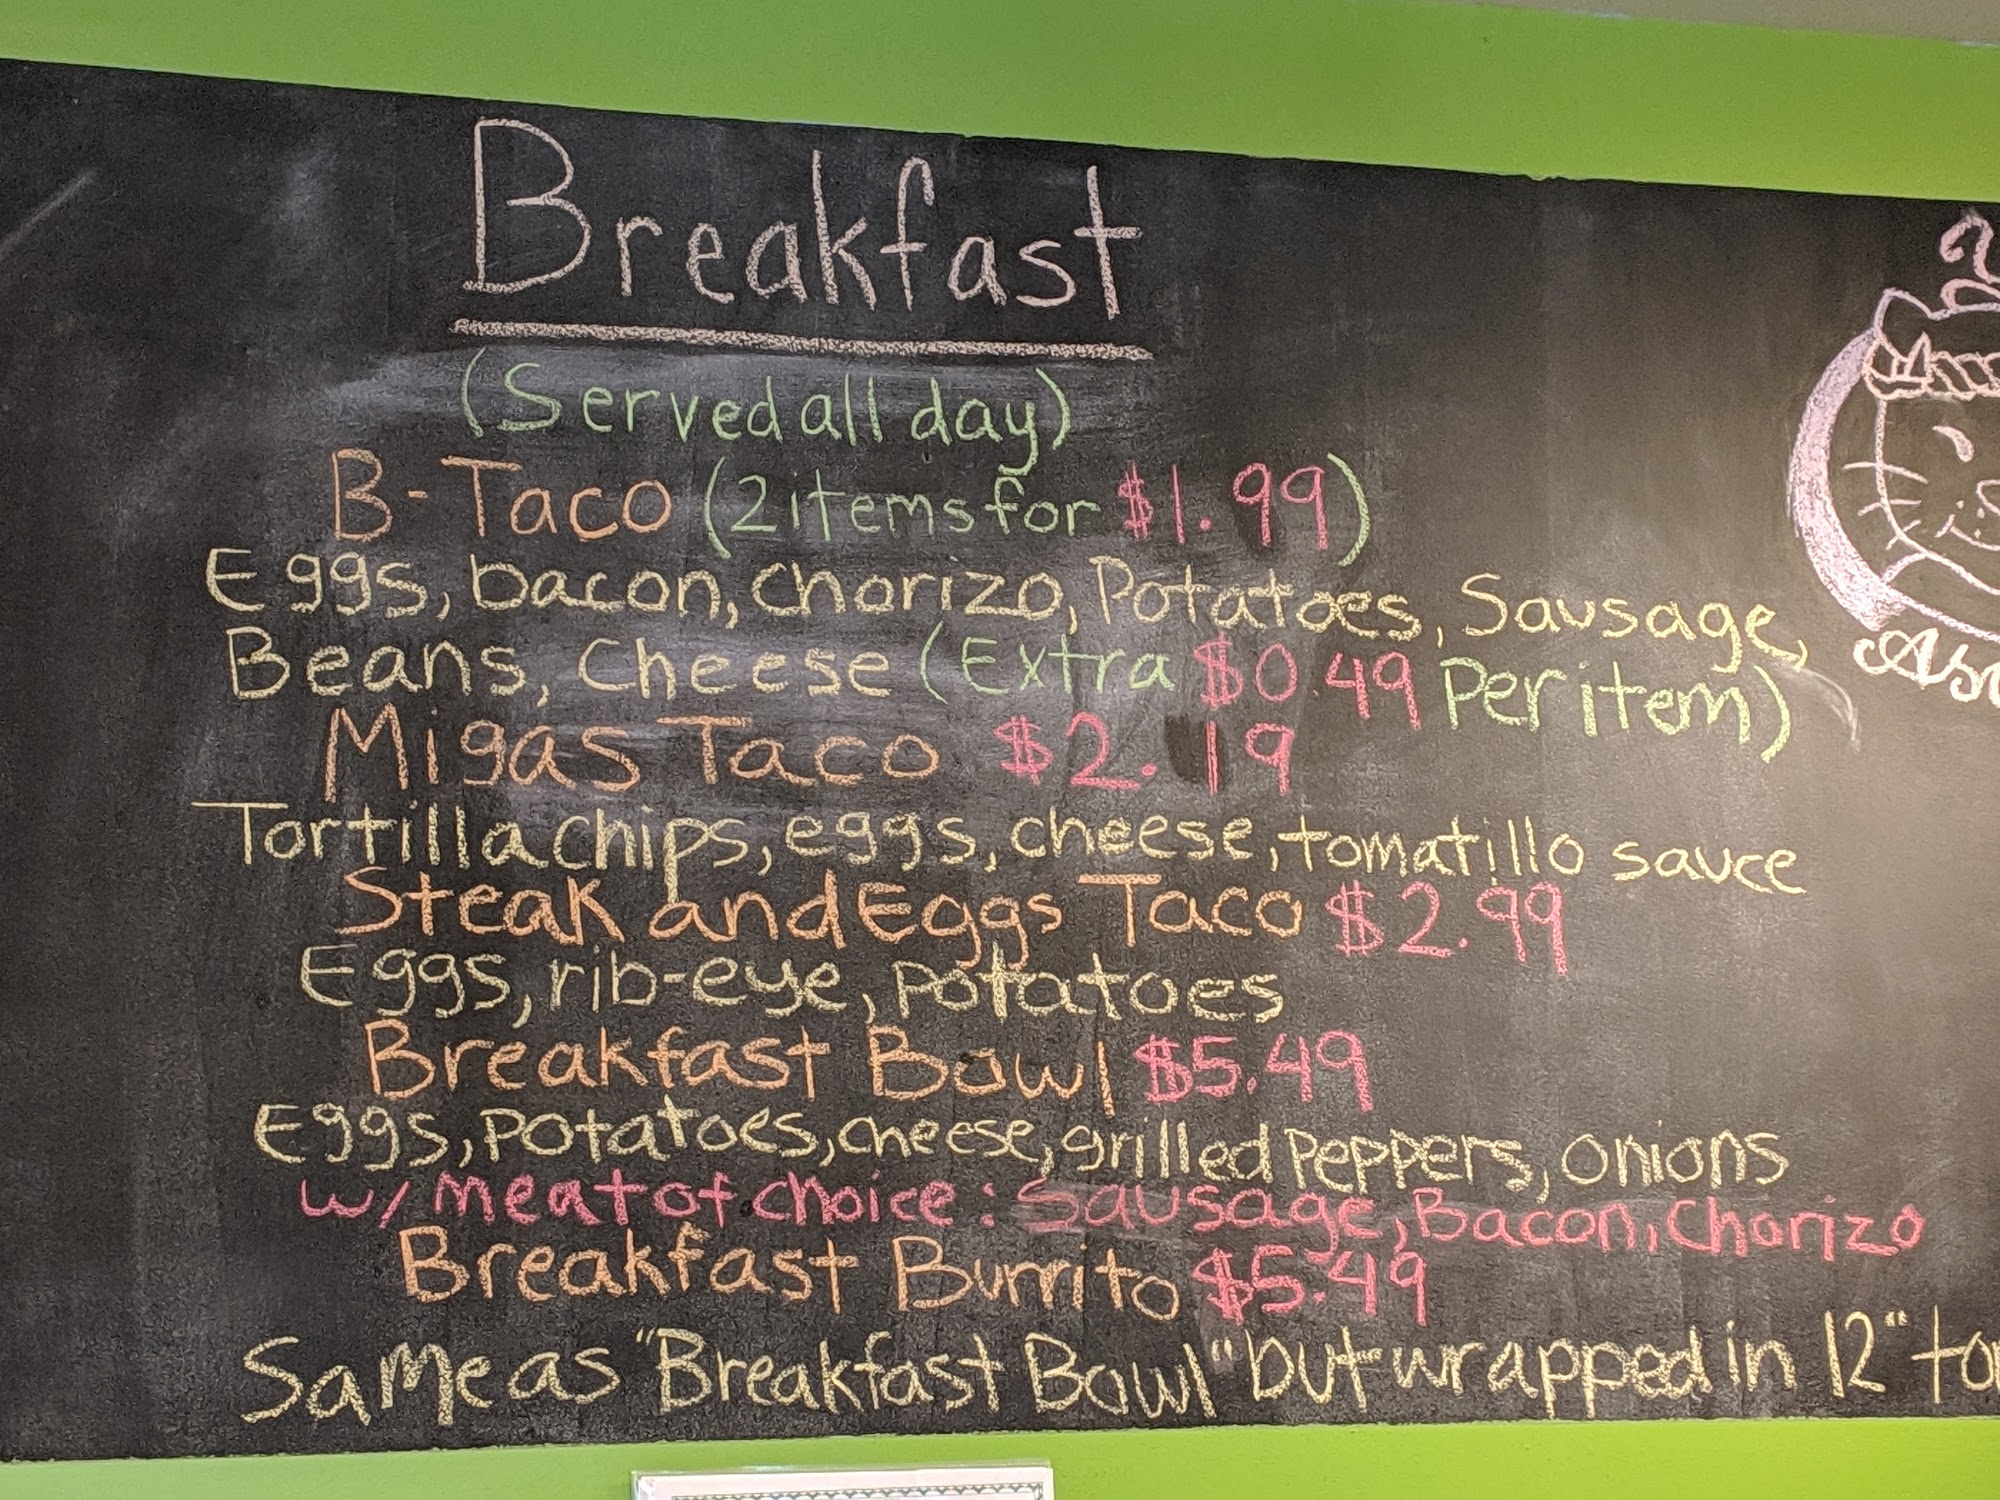 Breakfast
(Served all day)
B-Taco (2 items for $1.99)
Eggs, bacon, chorizo, Potatoes, Sausage,
Beans, cheese (Extra $0.49 Per item)
Migas Taco $2.19
Tortilla chips, eggs, cheese, tomatillo sauce
Steak and Eggs Taco $2.99
Eggs, rib-eye, potatoes
Breakfast Bowl $5.49
Eggs, Potatoes, cheese, grilled peppers, onions
w/ meat of choice: Sausage, Bacon, Chorizo
Breakfast Burrito $5.49
Same as "Breakfast Bowl" but wrapped in 12"